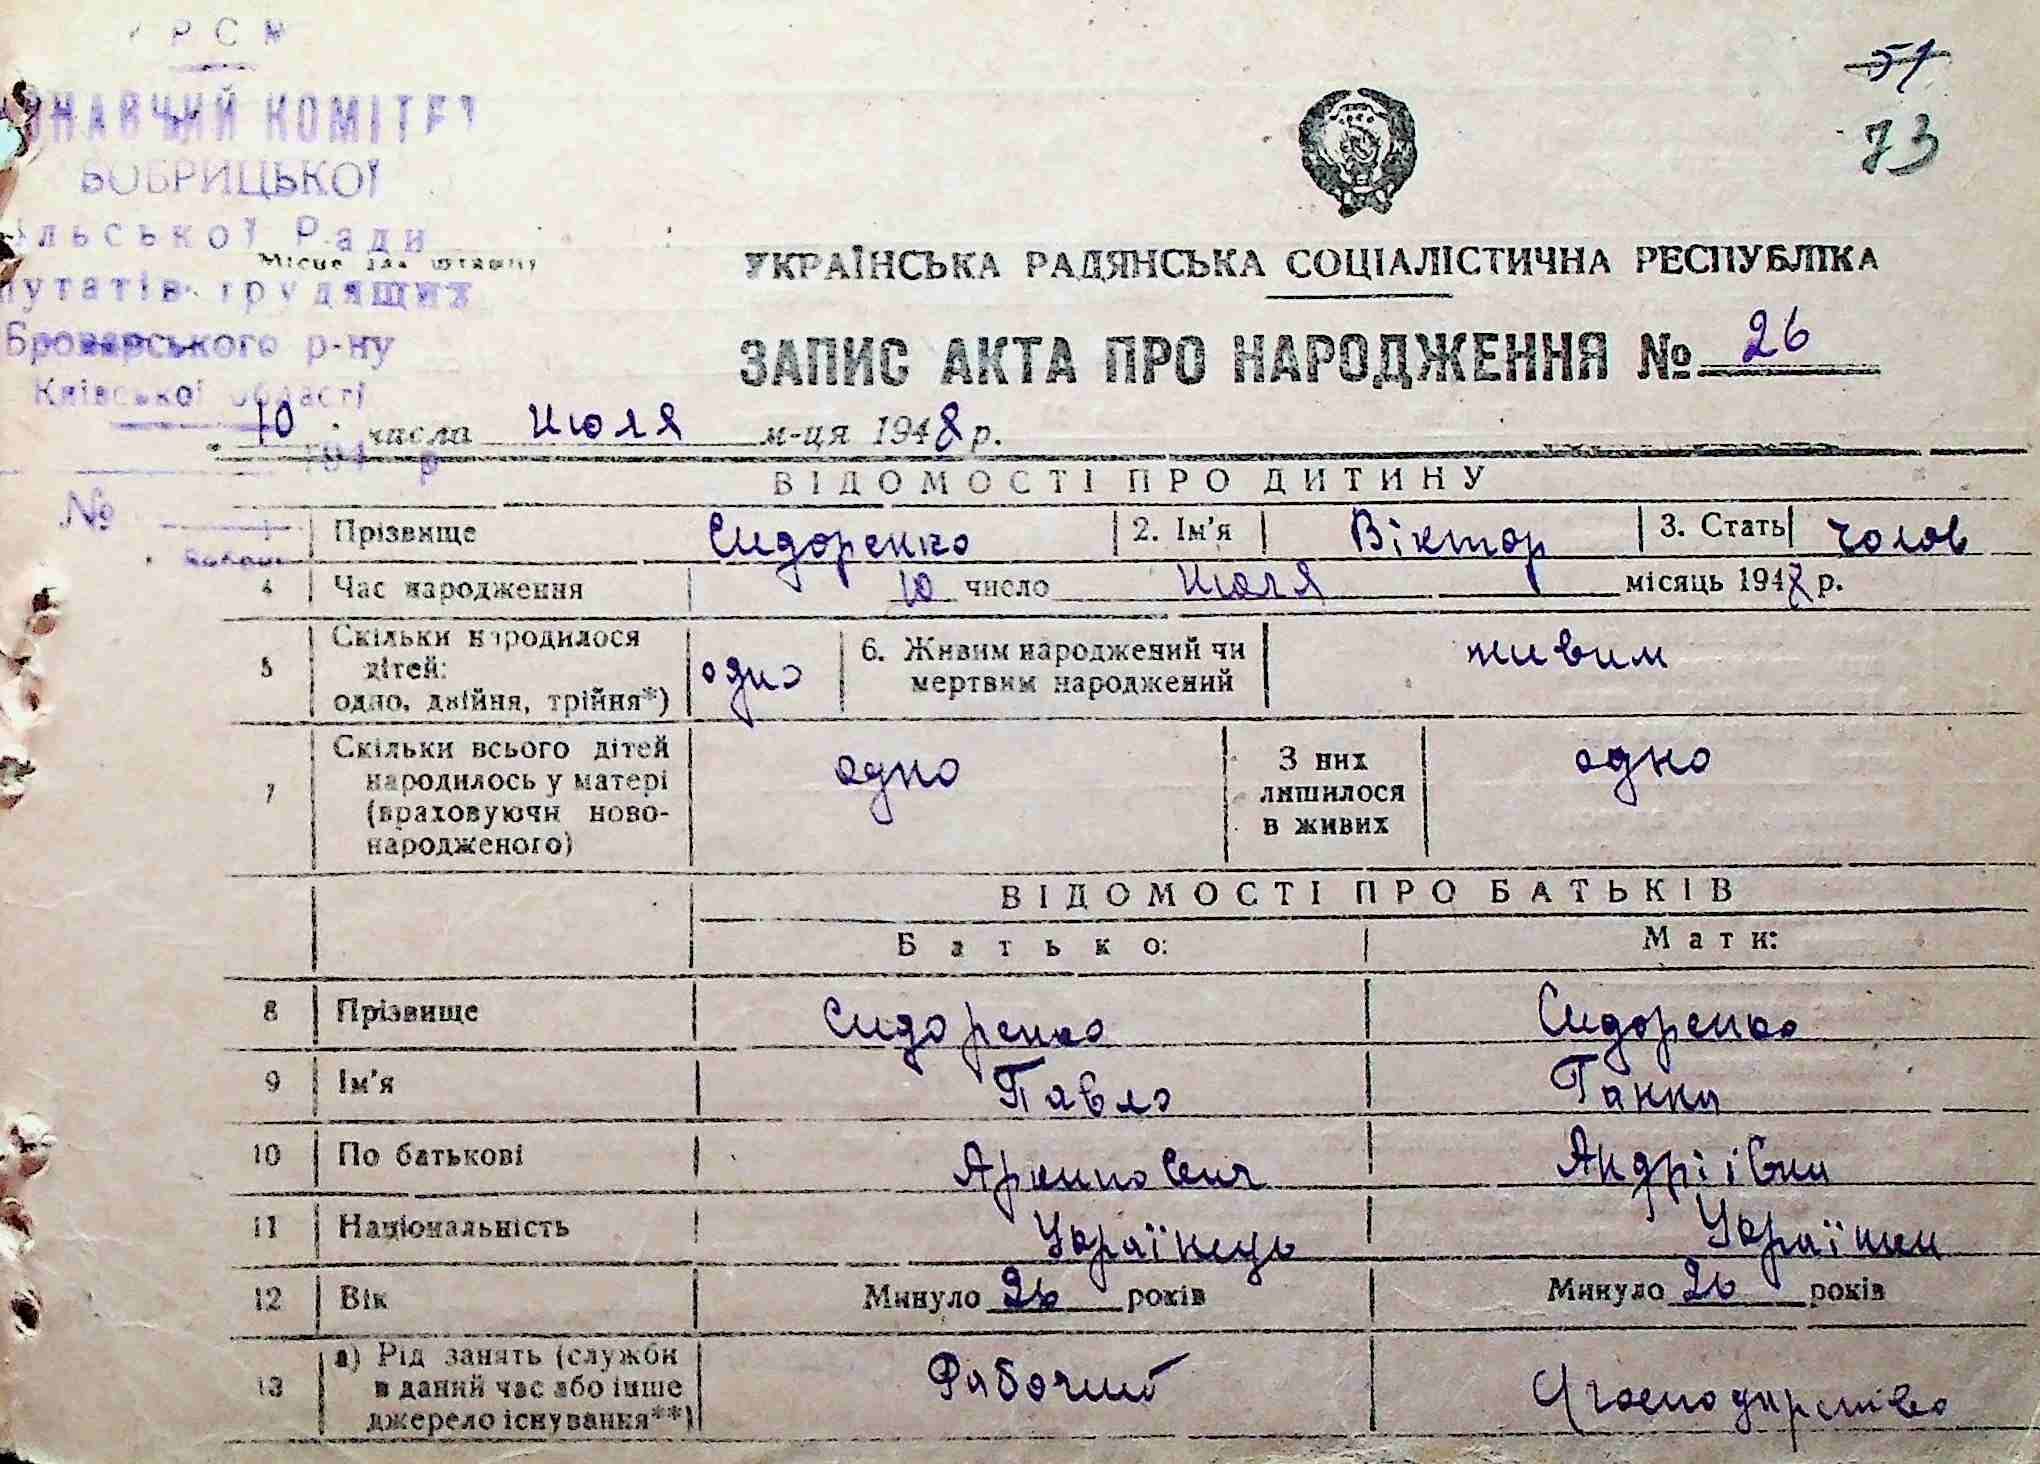 РСР
51
73
ВИКОНАВЧИЙ КОМІТЕТ
БОБРИЦЬКОЇ
сільської Ради
Місце для штампу
депутатів трудящих
Броварського р-ну
Київської області
194 р
№
УКРАЇНСЬКА РАДЯНСЬКА СОЦІАЛІСТИЧНА РЕСПУБЛІКА
ЗАПИС АКТА ПРО НАРОДЖЕННЯ № 26
" 10 " числа июля м-ця 1948 р.
ВІДОМОСТІ ПРО ДИТИНУ
1 Прізвище Сидоренко 2. Ім'я Віктор 3. Стать чолов
4 Час народження 10 число июля місяць 1948 р.
5 Скільки народилося дітей: одно, двійня, трійня*) одно 6. Живим народжений чи мертвим народжений живим
7 Скільки всього дітей народилось у матері (враховуючи новонародженого) одно З них лишилося в живих одно
ВІДОМОСТІ ПРО БАТЬКІВ
Батько: Мати:
8 Прізвище Сидоренко Сидоренко
9 Ім'я Павло Ганна
10 По батькові Архипович Андріївна
11 Національність Українець Українка
12 Вік Минуло 26 років Минуло 26 років
13 а) Рід занять (служби в даний час або інше джерело існування**) Рабочий господарство